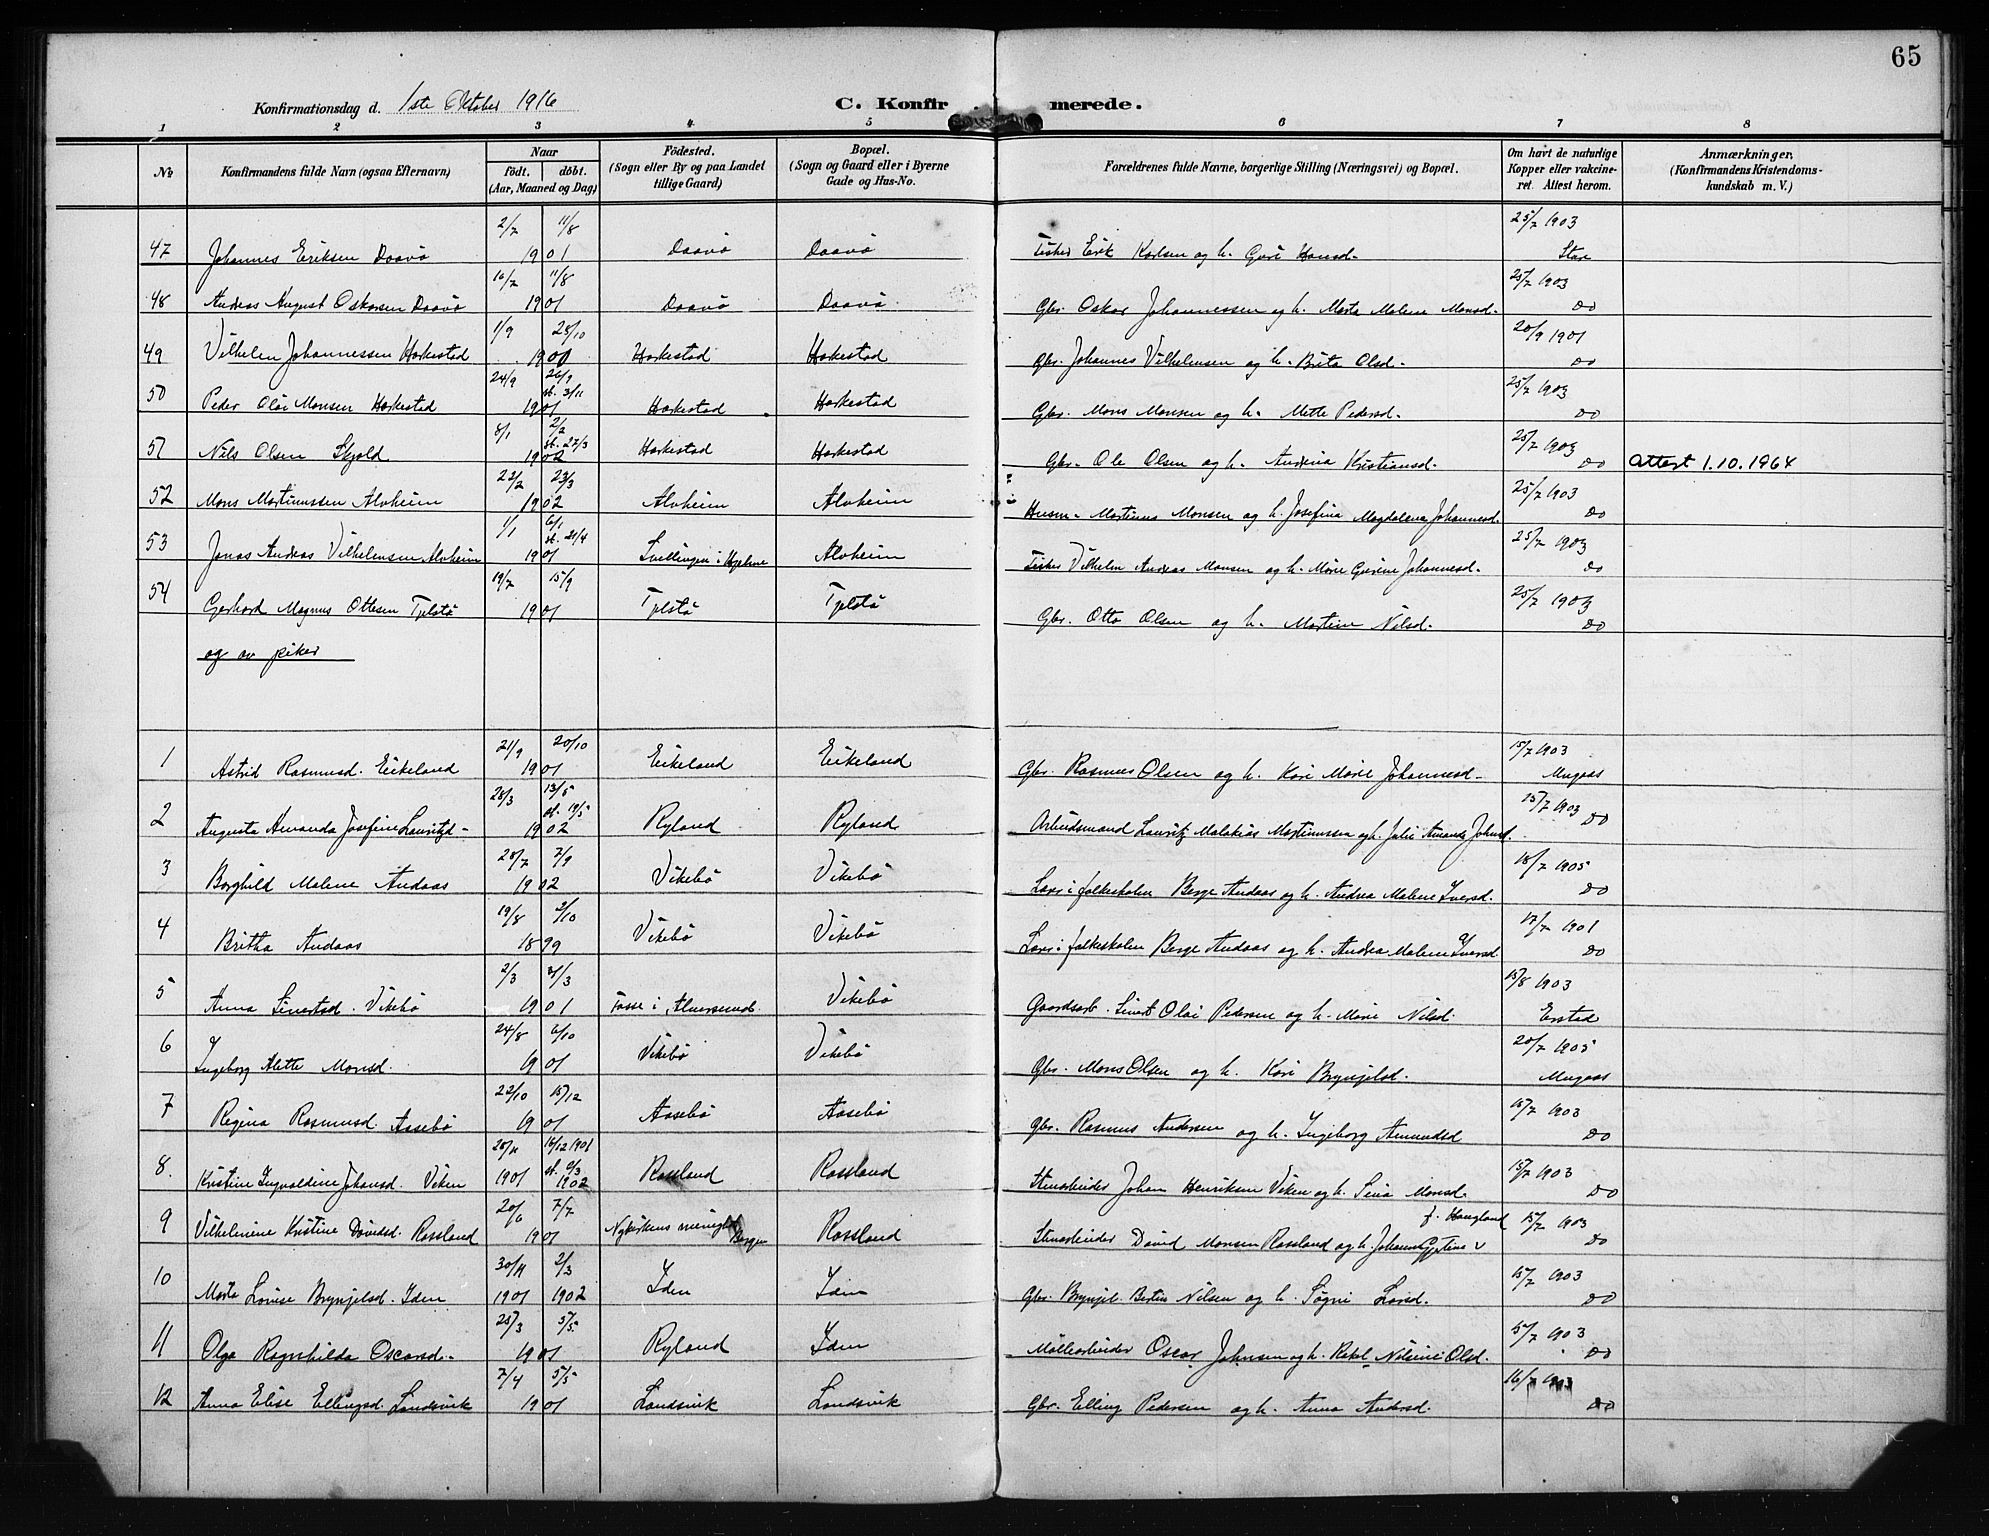 65
Konfirmationsdag d. 1ste Oktober 1916
C. Konfirmerede.
1 2 3 4 5 6 7 8
No
Konfirmandens fulde Navn (ogsaa Efternavn)
Naar
født. døbt.
(Aar, Maaned og Dag)
Födested.
(Sogn eller By og paa Landet
tillige Gaard)
Bopæl.
(Sogn og Gaard eller i Byerne
Gade og Hus-No.
Forældrenes fulde Navne, borgerlige Stilling (Næringsvei) og Bopæl.
Om havt de naturlige
Kopper eller vakcine-
ret. Attest herom.
Anmærkninger.
(Konfirmandens Kristendoms-
kundskab m. V.)
47 Johannes Eriksen Daavø 2/7 11/8 1901 Daavø Daavø Fisker Erik Karlsen og h. Guri Hansd. 25/7 1903
48 Andreas August Oskarsen Daavø 16/7 11/8 1901 Daavø Daavø Gbr. Oskar Johannessen og h. Marta Malene Monsd. 25/7 1903 Do
49 Vilhelm Johannessen Harkestad 1/9 28/10 1900 Harkestad Harkestad Gbr. Johannes Vilhelmsen og h. Brita Olsd. 20/9 1901 Do
50 Peder Olai Monsen Harkestad 24/9 26/9 st. 3/11 1901 Harkestad Harkestad Gbr. Mons Monsen og h. Mette Pedersd. 25/7 1903 Do
51 Nils Olsen Skjold 8/1 2/2 st. 27/3 1902 Harkestad Harkestad Gbr. Ole Olsen og h. Andrina Kristiansd. 25/7 1903 Do Attest 1.10.1964
52 Mons Martinussen Alvheim 22/2 23/3 1902 Alvheim Alvheim Husm. Martinus Monsen og h. Josefina Magdalena Johannesd. 25/7 1903 Do
53 Jonas Andreas Vilhelmsen Alvheim 1/1 6/1 st. 21/4 1901 i Alvheim Fisker Vilhelm Andreas Monsen og h. Marie Gurine Johannesd. 25/7 1903 Do
54 Gerhard Magnus Ottesen Tjelstø 19/7 15/9 1901 Tjelstø Tjelstø Gbr. Otto Olsen og h. Martine Nilsd. 25/7 1903 Do
og av piker
1 Astrid Rasmusd. Eikeland 21/9 20/10 1901 Eikeland Eikeland Gbr. Rasmus Olsen og h. Kari Marie Johannesd. 15/7 1903 Mugaas
2 Augusta Amanda Josefine Lauritzd. 28/3 13/5 st. 19/5 1902 Ryland Ryland Arbeidsmand Lauritz Malakias Martinussen og h. Julie Amanda Johnsd. 15/7 1903 Do
3 Borghild Malene Andaas 28/7 7/9 1902 Vikebø Vikebø Lærer i folkeskolen Berge Andaas og h. Andrea Malene Iversd. 18/7 1905 Do
4 Britha Andaas 19/8 2/10 1899 Vikebø Vikebø Lærer i folkeskolen Berge Andaas og h. Andrea Malene Iversd. 17/7 1901 Do
5 Anna Sivertsd. Vikebø 2/3 31/3 1901 Fosse i Alversund Vikebø Gaardsarb. Sivert Olai Pedersen og h. Marie Nilsd. 15/8 1903
6 Ingeborg Alette Monsd. 24/8 6/10 1901 Vikebø Vikebø Gbr. Mons Olsen og h. Kari Brynjelsd. 20/7 1905 Mugaas
7 Regina Rasmusd. Aasebø 22/10 15/12 1901 Aasebø Aasebø Gbr. Rasmus Andersen og h. Ingeborg Amundsd 15/7 1903 Do
8. Kristine Ingvaldine Johansd. Viken 28/11 1901 16/12 1901 st. 9/3 1902 Rossland Rossland Stenarbeider Johan Henriksen Viken og h. Sina Monsd. 15/7 1903 Do
9 Vilhelmine Kristine Davidsd. Rossland 20/6 7/7 1901 Nykirkens menighet Bergen Rossland Stenarbeider David Monsen Rossland og h. Johanna f. Haugland 15/7 1903 Do
10 Marta Lovise Brynjelsd. Iden 30/11 1901 2/3 1902 Iden Iden Gbr. Brynjel Bertin Nilsen og h. Søgni Larsd. 15/7 1903 Do
11 Olga Ragnhilda Oscarsd. 25/3 5/5 1901 Ryland Iden Møllearbeider Oscar Johnsen og h. Rakel Nilsine Olsd. 15/7 1903 Do
12 Anna Elise Ellingsd. Landsvik 7/4 5/5 1901 Landsvik Landsvik Gbr. Elling Pedersen og h. Anna Andersd. 16/7 1903 Do